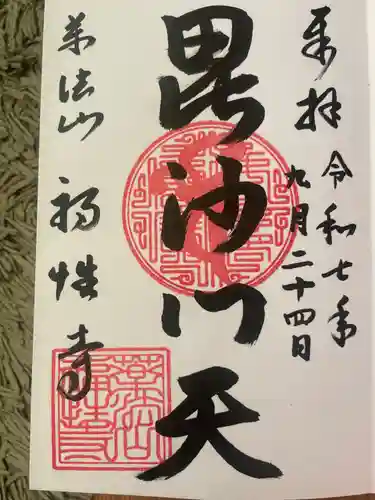 奉拝
令和七年
九月二十四日
毘沙門天
薬法山 福性寺